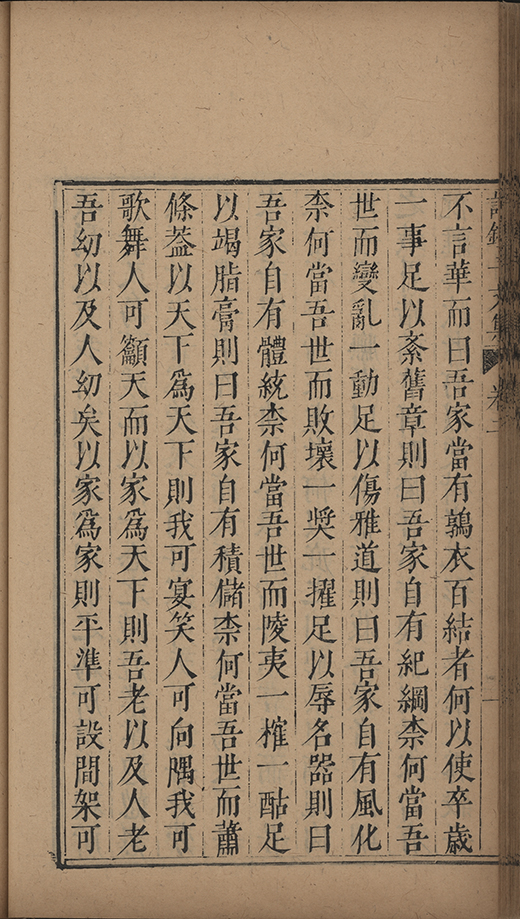 不言華而曰吾家當有鶉衣百結者何以使卒歲
一事足以紊舊章則曰吾家自有紀綱柰何當吾
世而變亂一動足以傷雅道則曰吾家自有風化
柰何當吾世而敗壞一奬一擢足以辱名器則曰
吾家自有體統柰何當吾世而陵夷一榷一酤足
以竭脂膏則曰吾家自有積儲柰何當吾世而蕭
條葢以天下爲天下則我可宴笑人可向隅我可
歌舞人可籲天而以家爲天下則吾老以及人老
吾幼以及人幼矣以家爲家則平準可設間架可